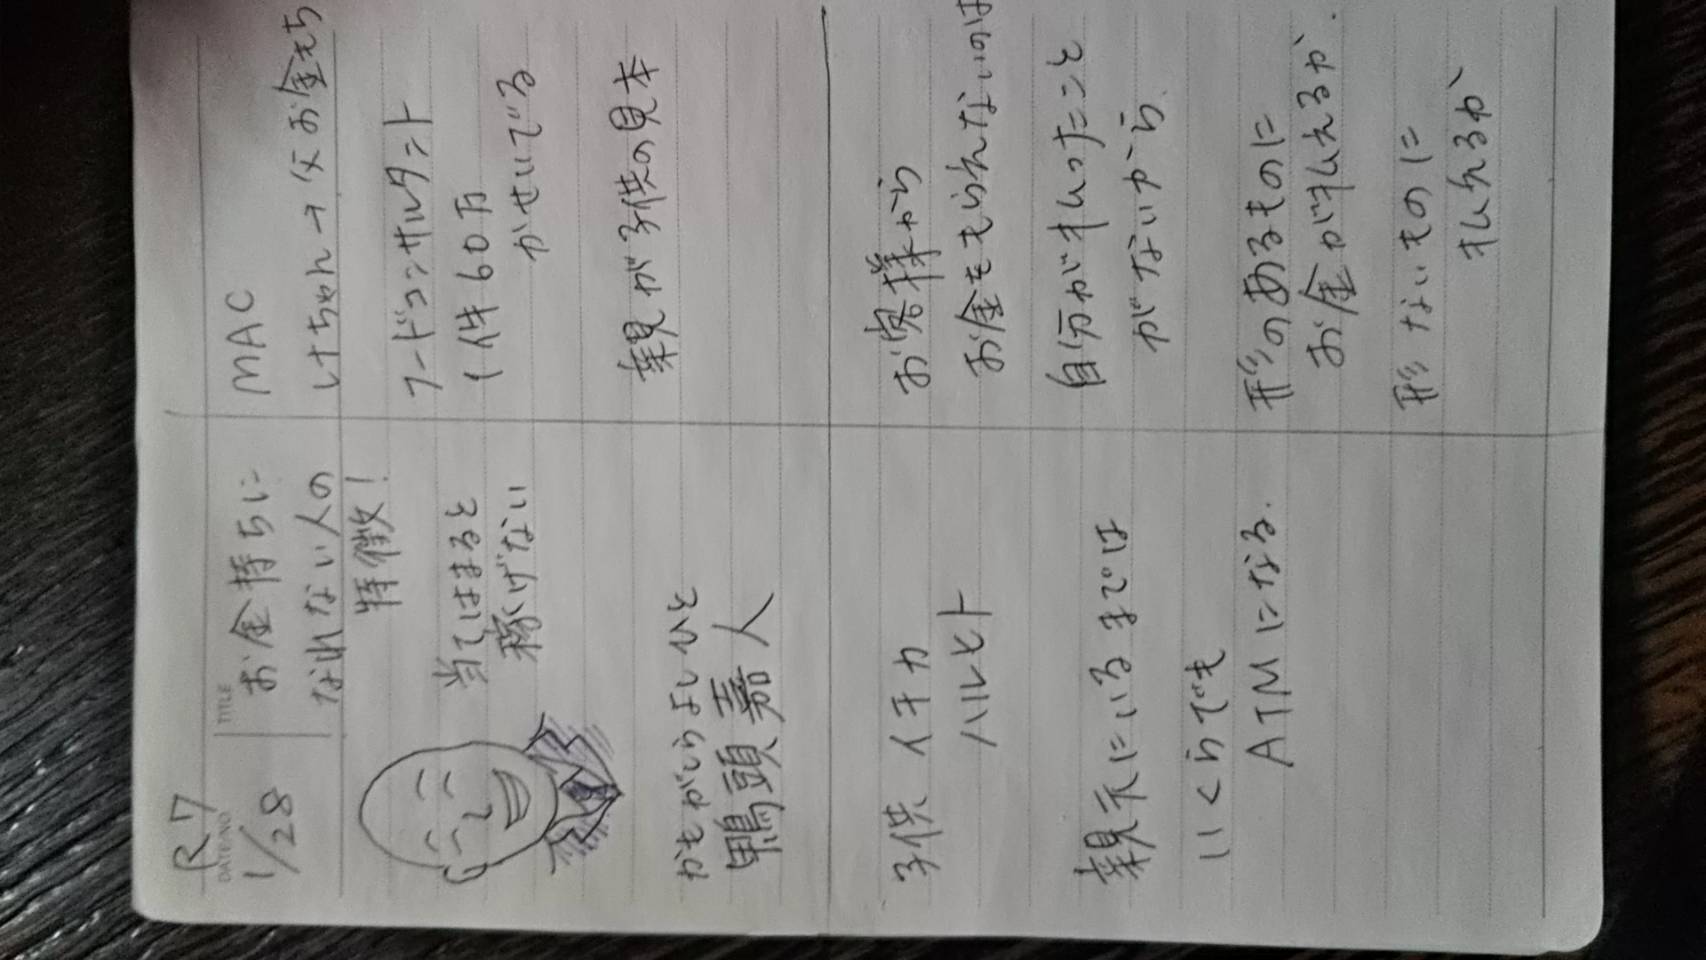 R7
DATE/NO
1/28
TITLE
お金持ちに
なれない人の
特徴!
当てはまると
稼げない
かもがしらよしひと
鴨頭嘉人
MAC
けちゃん→父お金もち
フードコンサルタント
1件60万
かせいでる
親が子供の見本
子供 イチカ
ハルヒト
親元にいるまでは
いくらでも
ATMになる.
お客様から
お金をもらえないのは
自分が払ったこと
がないから.
形のあるものに
お金が払えるか.
形ないものに
払えるか